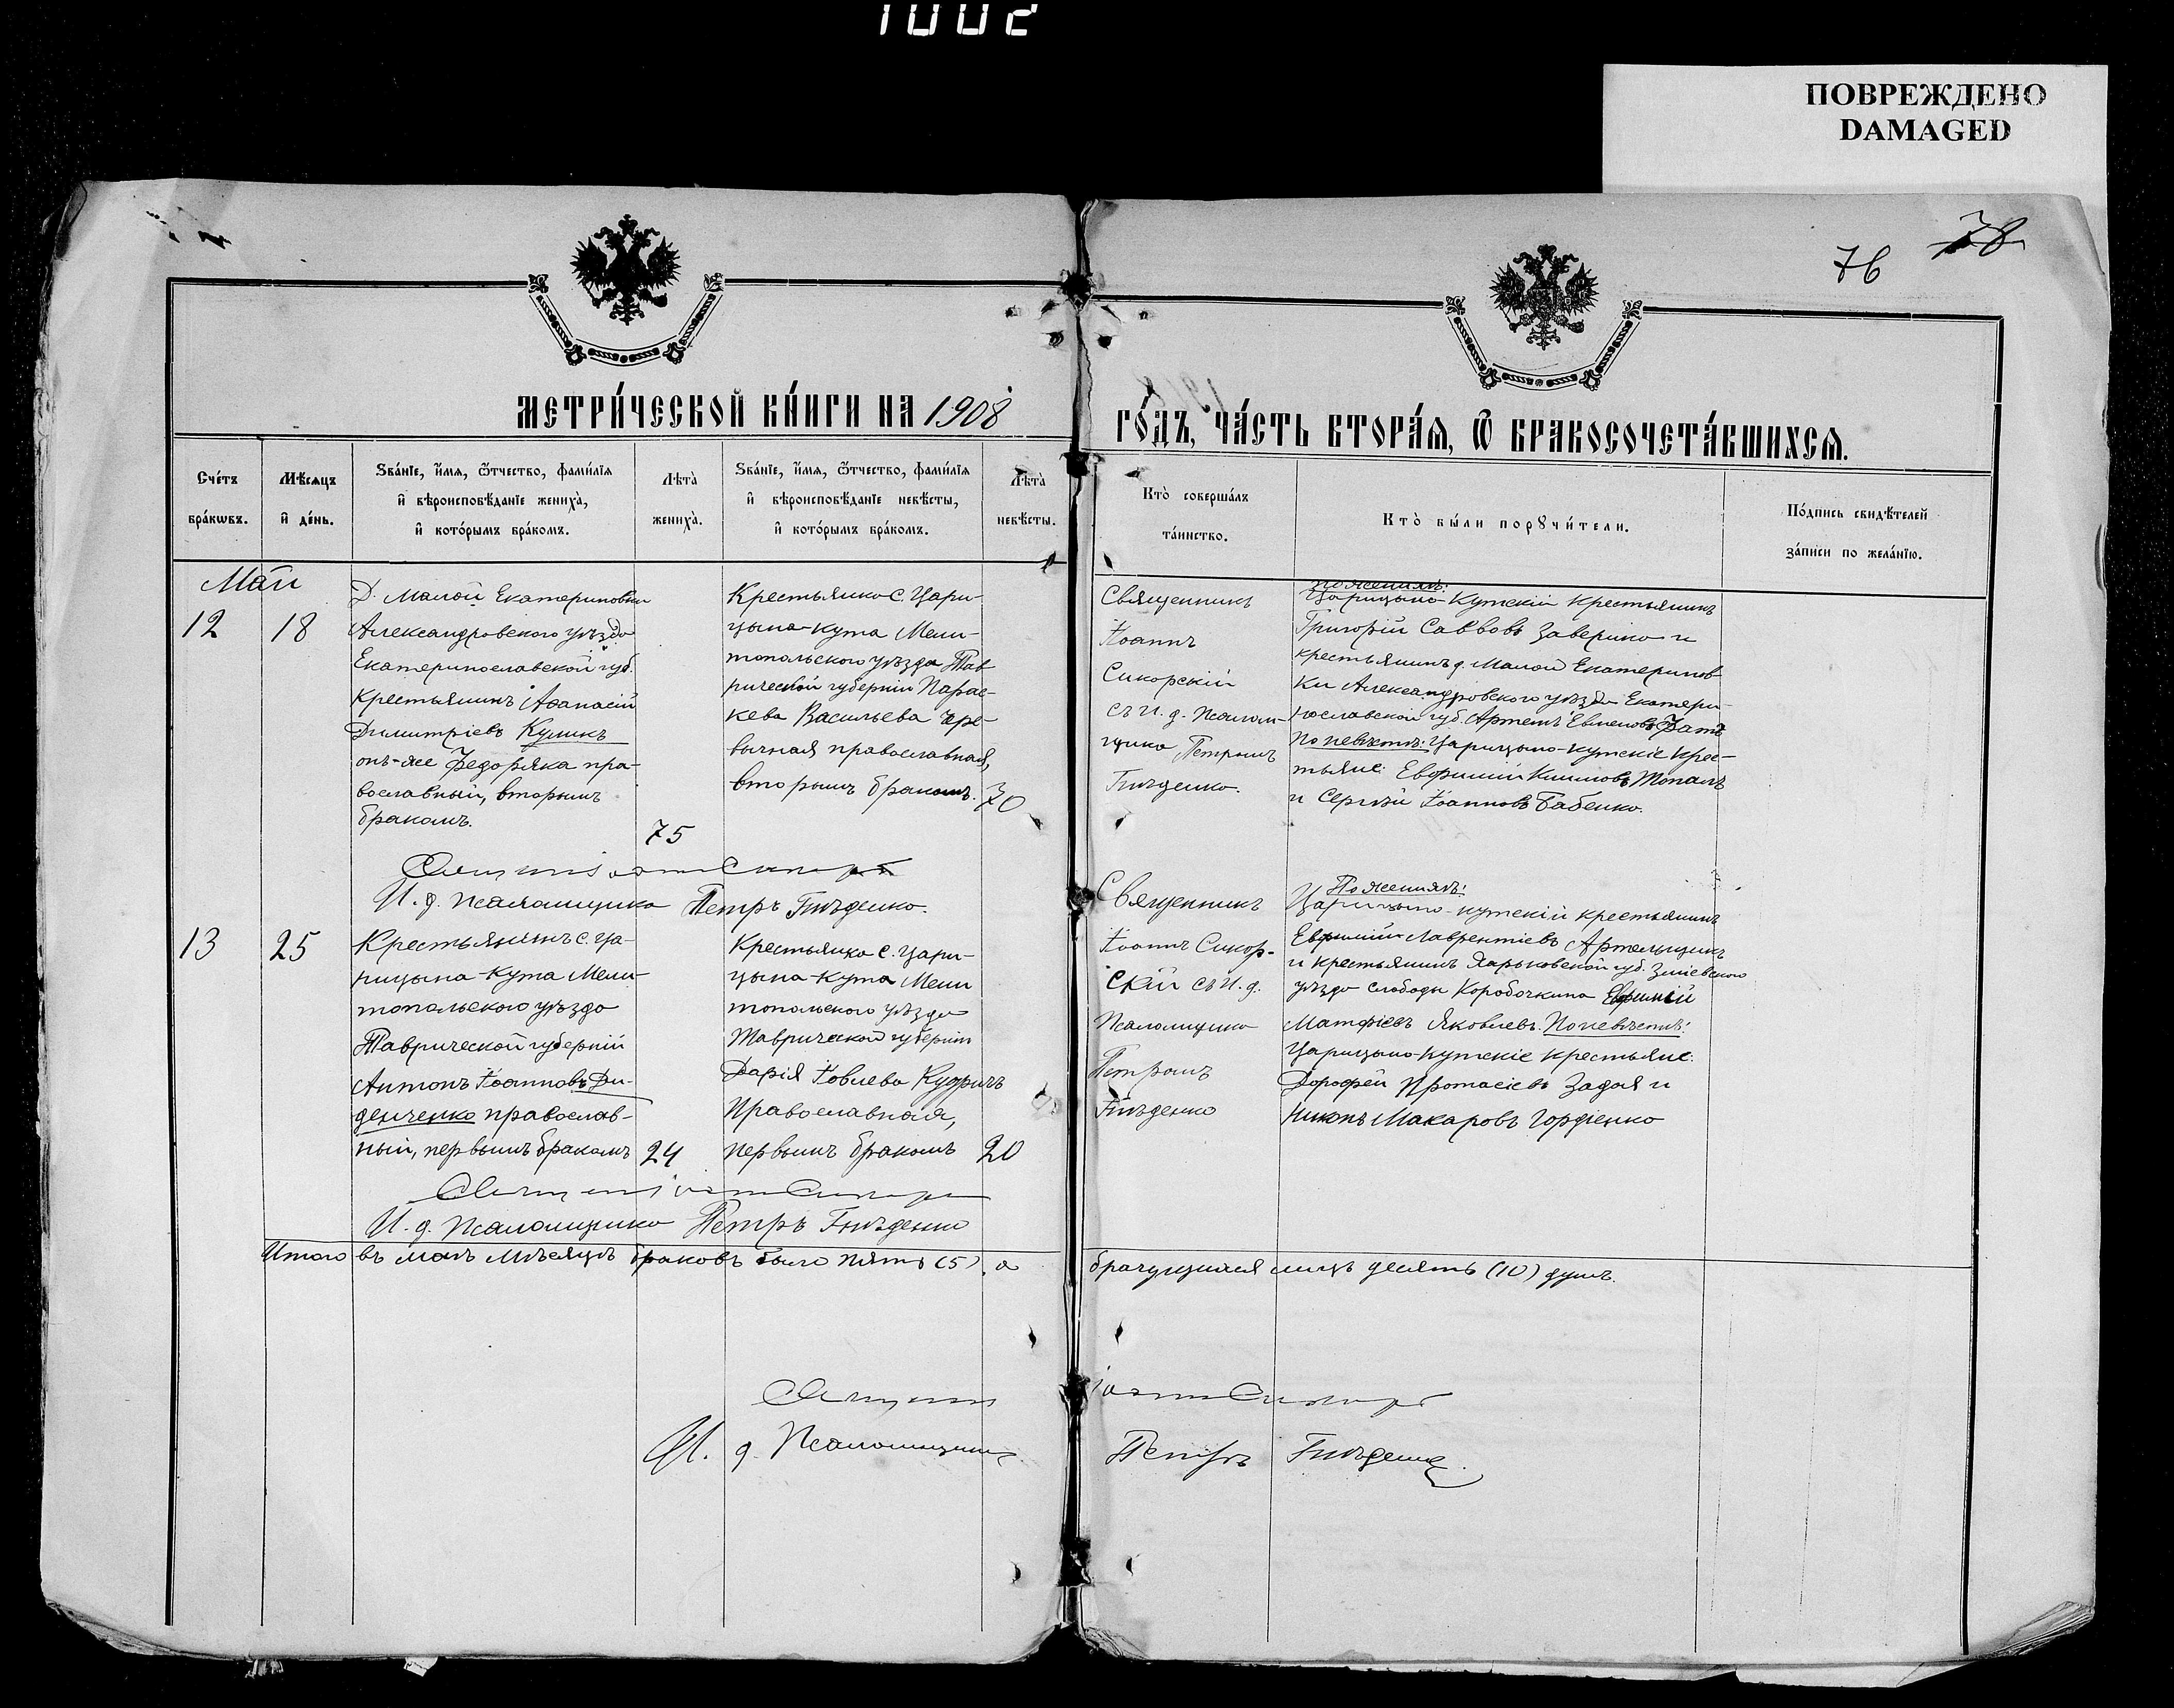 1002
ПОВРЕЖДЕНО
DAMAGED
76 78
МЕТРИ́ЧЕСКОЙ КНИ́ГИ НА 1908
ГО́ДЪ, ЧА́СТЬ ВТОРА́Я, Ѿ БРАКОСОЧЕТА́ВШИХСЯ.
Сче́тъ бра́кѡвъ.
Мѣ́сяцъ и де́нь.
Зва́нїе, и́мя, ѻ́тчество, фами́лїя и вѣроисповѣ́данїе жениха̀, и кото́рымъ бра́комъ.
Лѣта̀ жениха̀.
Зва́нїе, и́мя, ѻ́тчество, фами́лїя и вѣроисповѣ́данїе невѣ́сты, и кото́рымъ бра́комъ.
Лѣта̀ невѣ́сты.
Кто̀ соверша́лъ та́инство.
Кто̀ бы́ли порꙋчи́тели.
По́дпись свидѣ́телей за́писи по жела́нїю.
Май
12
18
Д. Малой Екатериновки
Александровского уѣзда
Екатеринославской губ.
крестьянинъ Аѳанасій
Димитріевъ Куликъ
онъ-же Федоряка пра-
вославный, вторымъ
бракомъ.
75
Крестьянка с. Цари-
цына-Кута Мели-
топольского уѣзда Тав
рической губерніи Парас-
кева Васильева Чере-
вычная православная,
вторымъ бракомъ.
70
Священникъ
Іоаннъ
Сикорскій
съ И. д. Псалом-
щика Петромъ
Гнѣденко.
По женихѣ:
Царицыно-Кутскій крестьянинъ
Григорій Саввовъ Заверико и
крестьянинъ д. Малой Екатеринов-
ки Александровского уѣзда Екатери-
нославской губ. Артемъ Евменовъ
По невѣстѣ: Царицыно-Кутскіе крес-
тьяне: Евфимій Климовъ Топалъ
и Сергѣй Іоанновъ Бабенко.
И. д. Псаломщика Петръ Гнѣденко.
13
25
Крестьянинъ с. Ца-
рицына-Кута Мели-
топольского уѣзда
Таврической губерніи
Антонъ Іоанновъ Ди-
денченко православ-
ный, первымъ бракомъ
24
Крестьянка с. Цари-
цына-Кута Мели
топольского уѣзда
Таврической губерніи
Дарія Іовлева Кудричъ
Православная,
первымъ бракомъ
20
Священникъ
Іоаннъ Сикор-
скій съ И. д.
Псаломщика
Петромъ
Гнѣденко
По женихѣ:
Царицыно-Кутскій крестьянинъ
Евфимій Лаврентіевъ Артельщикъ
и крестьянинъ Харьковской губ. Зміевского
уѣзда слободы Коробочкина Евфимій
Матфіевъ Яковлевъ. По невѣстѣ:
Царицыно-Кутскіе крестьяне:
Дорофей Протасіевъ Задая и
Никонъ Макаровъ Гордіенко
И. д. Псаломщика Петръ Гнѣденко
Итого въ маѣ мѣсяцѣ браковъ было пять (5), а брачущихся лицъ десять (10) душъ.
И. д. Псаломщика Петръ Гнѣденко.